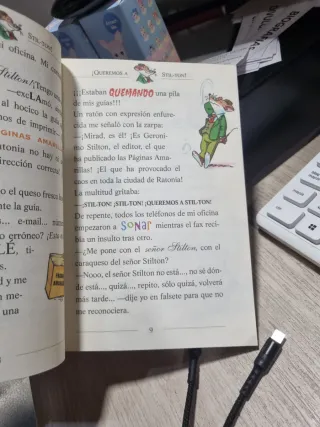 STIL-TON!
oficina. Mi
Stilton! ¡Tengo
—excLAMó
al hocico la
nos de imprimir
PÁGINAS AMAR
atonia no hay
dirección correcta!
el queso fresco
ente la guía.
s... e-mail...
o erróneo? ¡Es
LÉ, ti-
d y me
n me-
¡QUEREMOS A STIL-TON!
¡¡¡Estaban QUEMANDO una pila
de mis guías!!!
Un ratón con expresión enfure-
cida me señaló con la zarpa:
—¡Mirad, es él! ¡Es Geroni-
mo Stilton, el editor, el que
ha publicado las Páginas Ama-
rillas! ¡El que ha provocado el
caos en toda la ciudad de Ratonia!
La multitud gritaba:
—¡STIL-TON! ¡STIL-TON! ¡QUEREMOS A STIL-TON!
De repente, todos los teléfonos de mi oficina
empezaron a SONAR mientras el fax reci-
bía un insulto tras otro.
—¿Me pone con el señor Stilton, con el
caraqueso del señor Stilton?
—Nooo, el señor Stilton no está..., no sé dón-
de está..., quizá..., repito, sólo quizá, volverá
más tarde... —dije yo en falsete para que no
me reconociera.
9